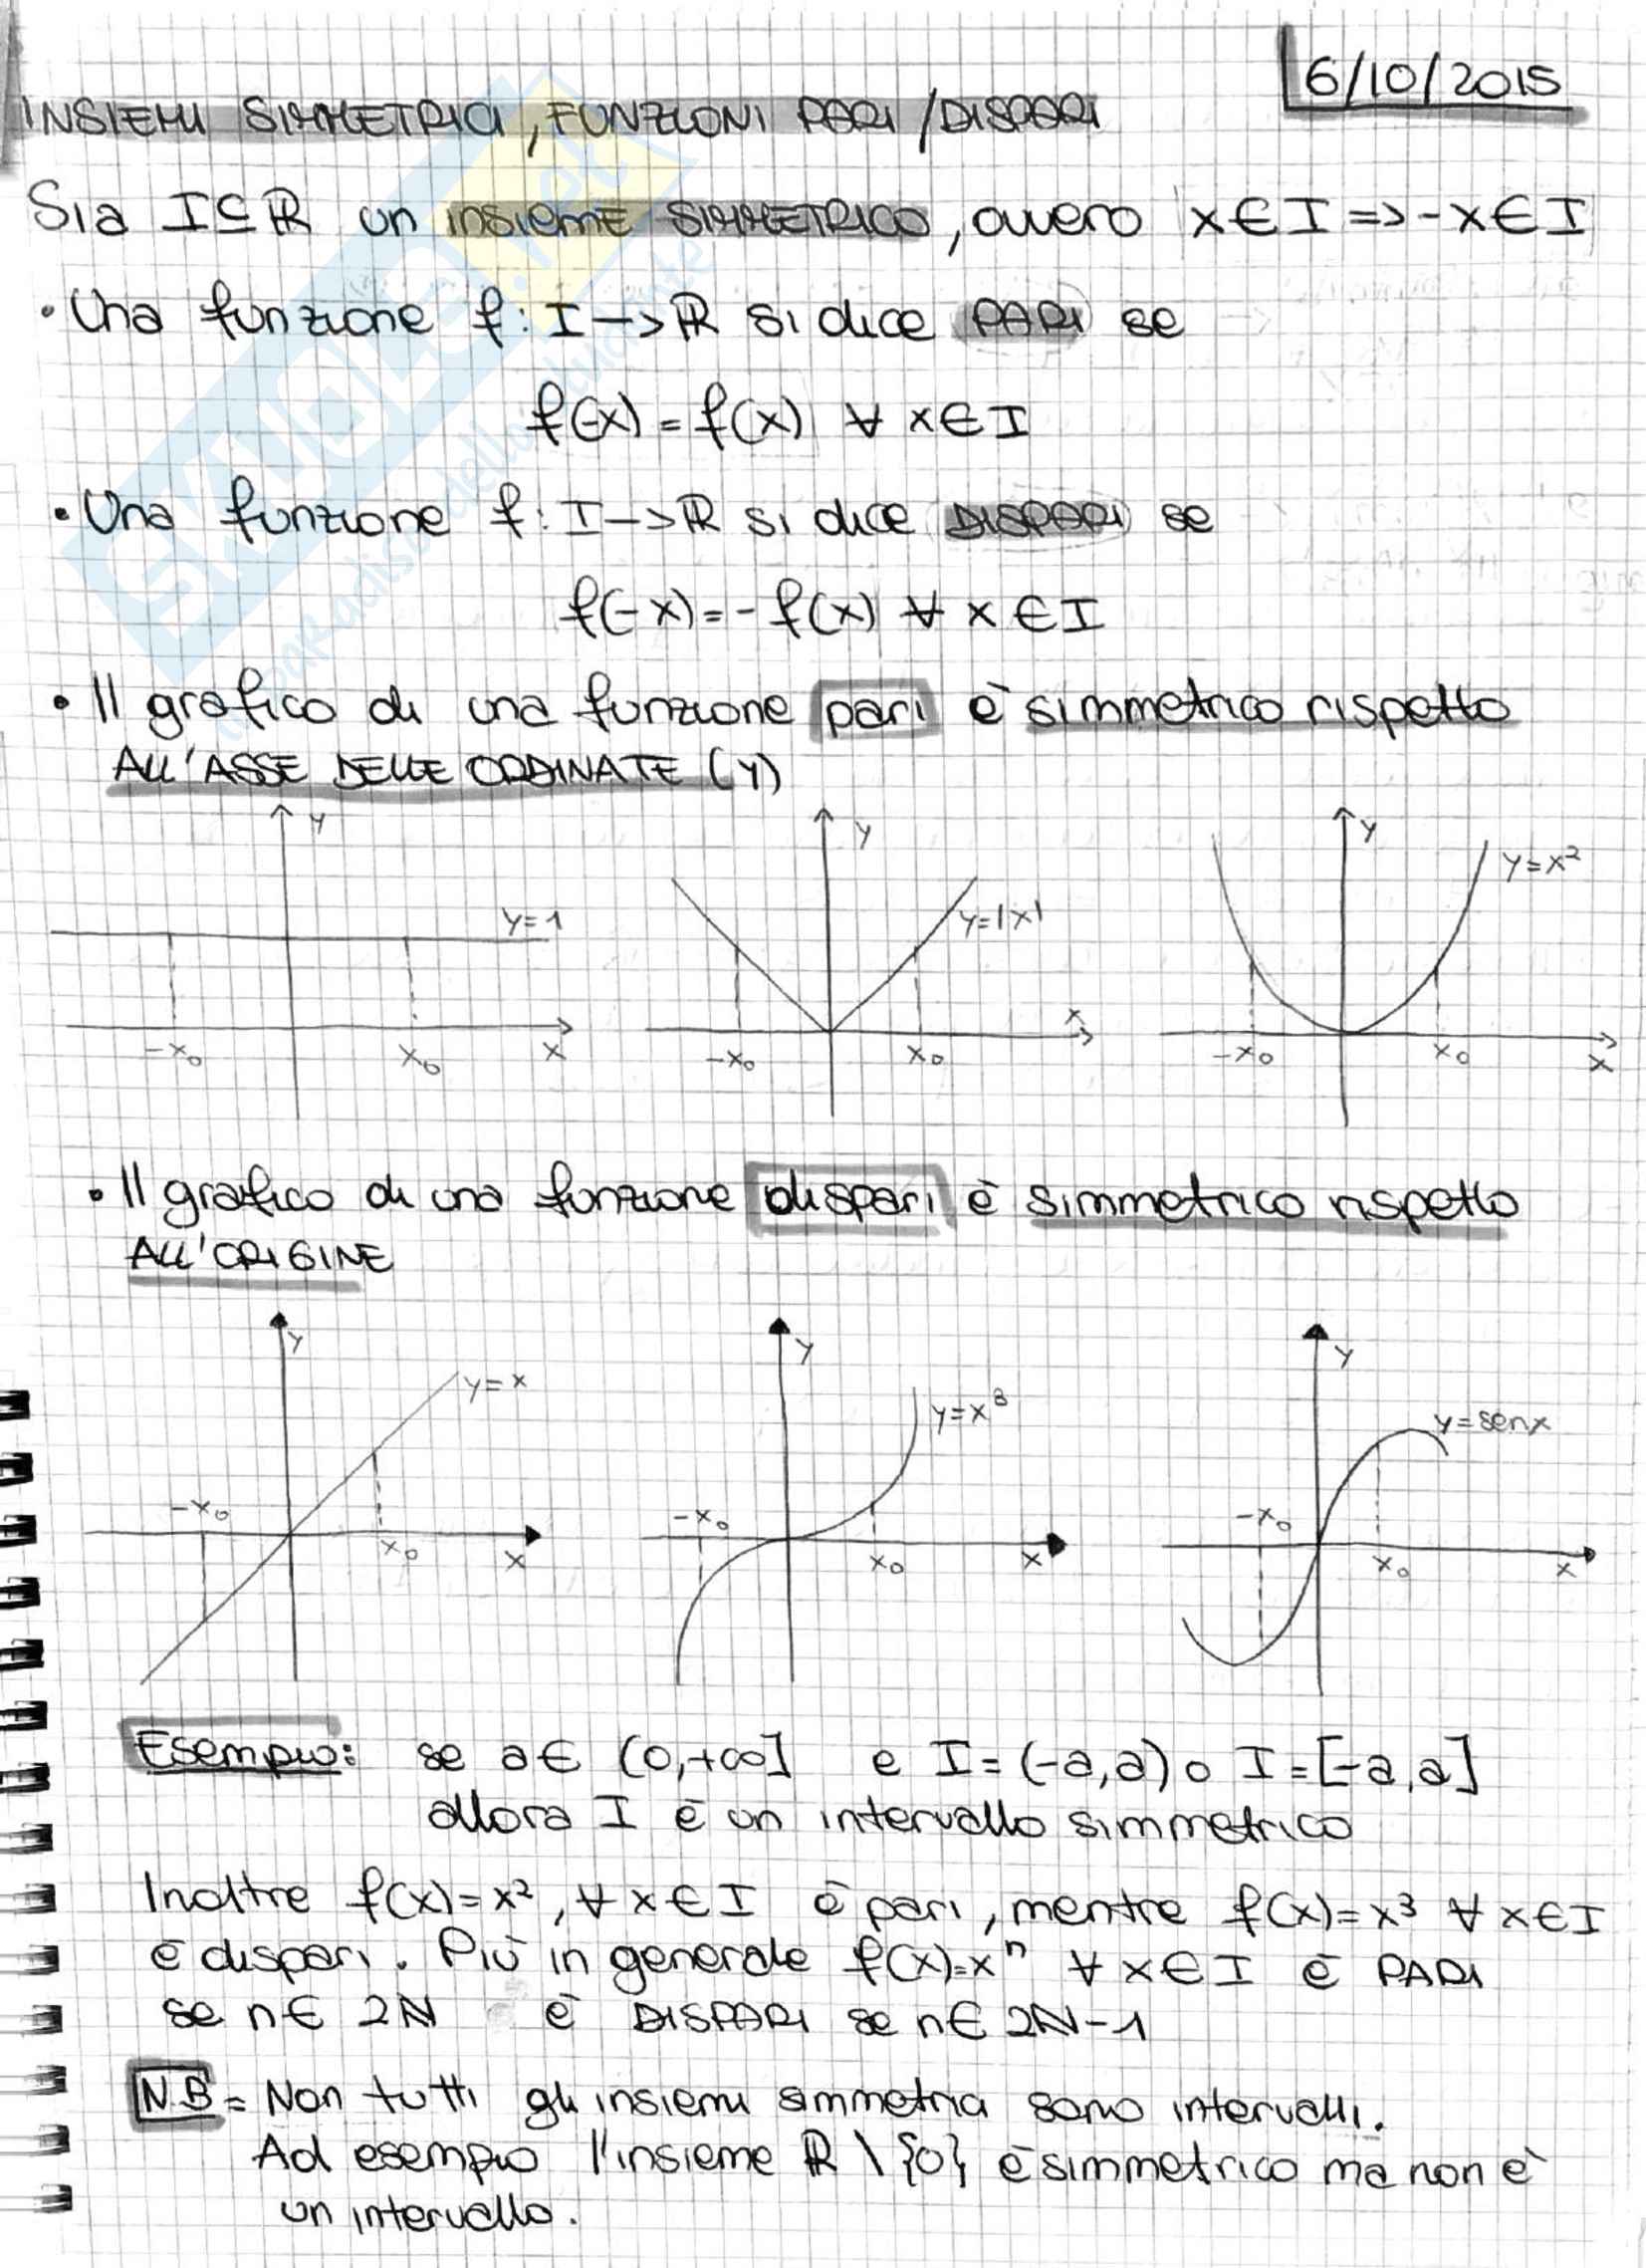 6/10/2015
INSIEMI SIMMETRICI, FUNZIONI PARI/DISPARI
Sia I⊆ℝ un insieme SIMMETRICO, ovvero x∈I=>-x∈I
• Una funzione f: I->ℝ si dice PARI se
f(-x)=f(x) ∀ x∈I
• Una funzione f: I->ℝ si dice DISPARI se
f(-x)=-f(x) ∀ x∈I
• Il grafico di una funzione pari è simmetrico rispetto
ALL'ASSE DELLE ORDINATE (Y)
y y y
y=1 y=|x| y=x²
-x₀ x₀ x -x₀ x₀ x -x₀ x₀ x
• Il grafico di una funzione dispari è simmetrico rispetto
ALL'ORIGINE
y y y
y=x y=x³ y=senx
-x₀ x₀ x -x₀ x₀ x -x₀ x₀ x
Esempio: se a∈ (0,+∞] e I=(-a,a) o I=[-a,a]
allora I è un intervallo simmetrico
Inoltre f(x)=x², ∀ x∈I è pari, mentre f(x)=x³ ∀ x∈I
è dispari. Più in generale f(x)=xⁿ ∀ x∈I è PARI
se n∈ 2ℕ è DISPARI se n∈ 2ℕ-1
N.B = Non tutti gli insiemi simmetrici sono intervalli.
Ad esempio l'insieme ℝ \ {0} è simmetrico ma non è
un intervallo.
SKUOLA.net
il paradiso dello studente